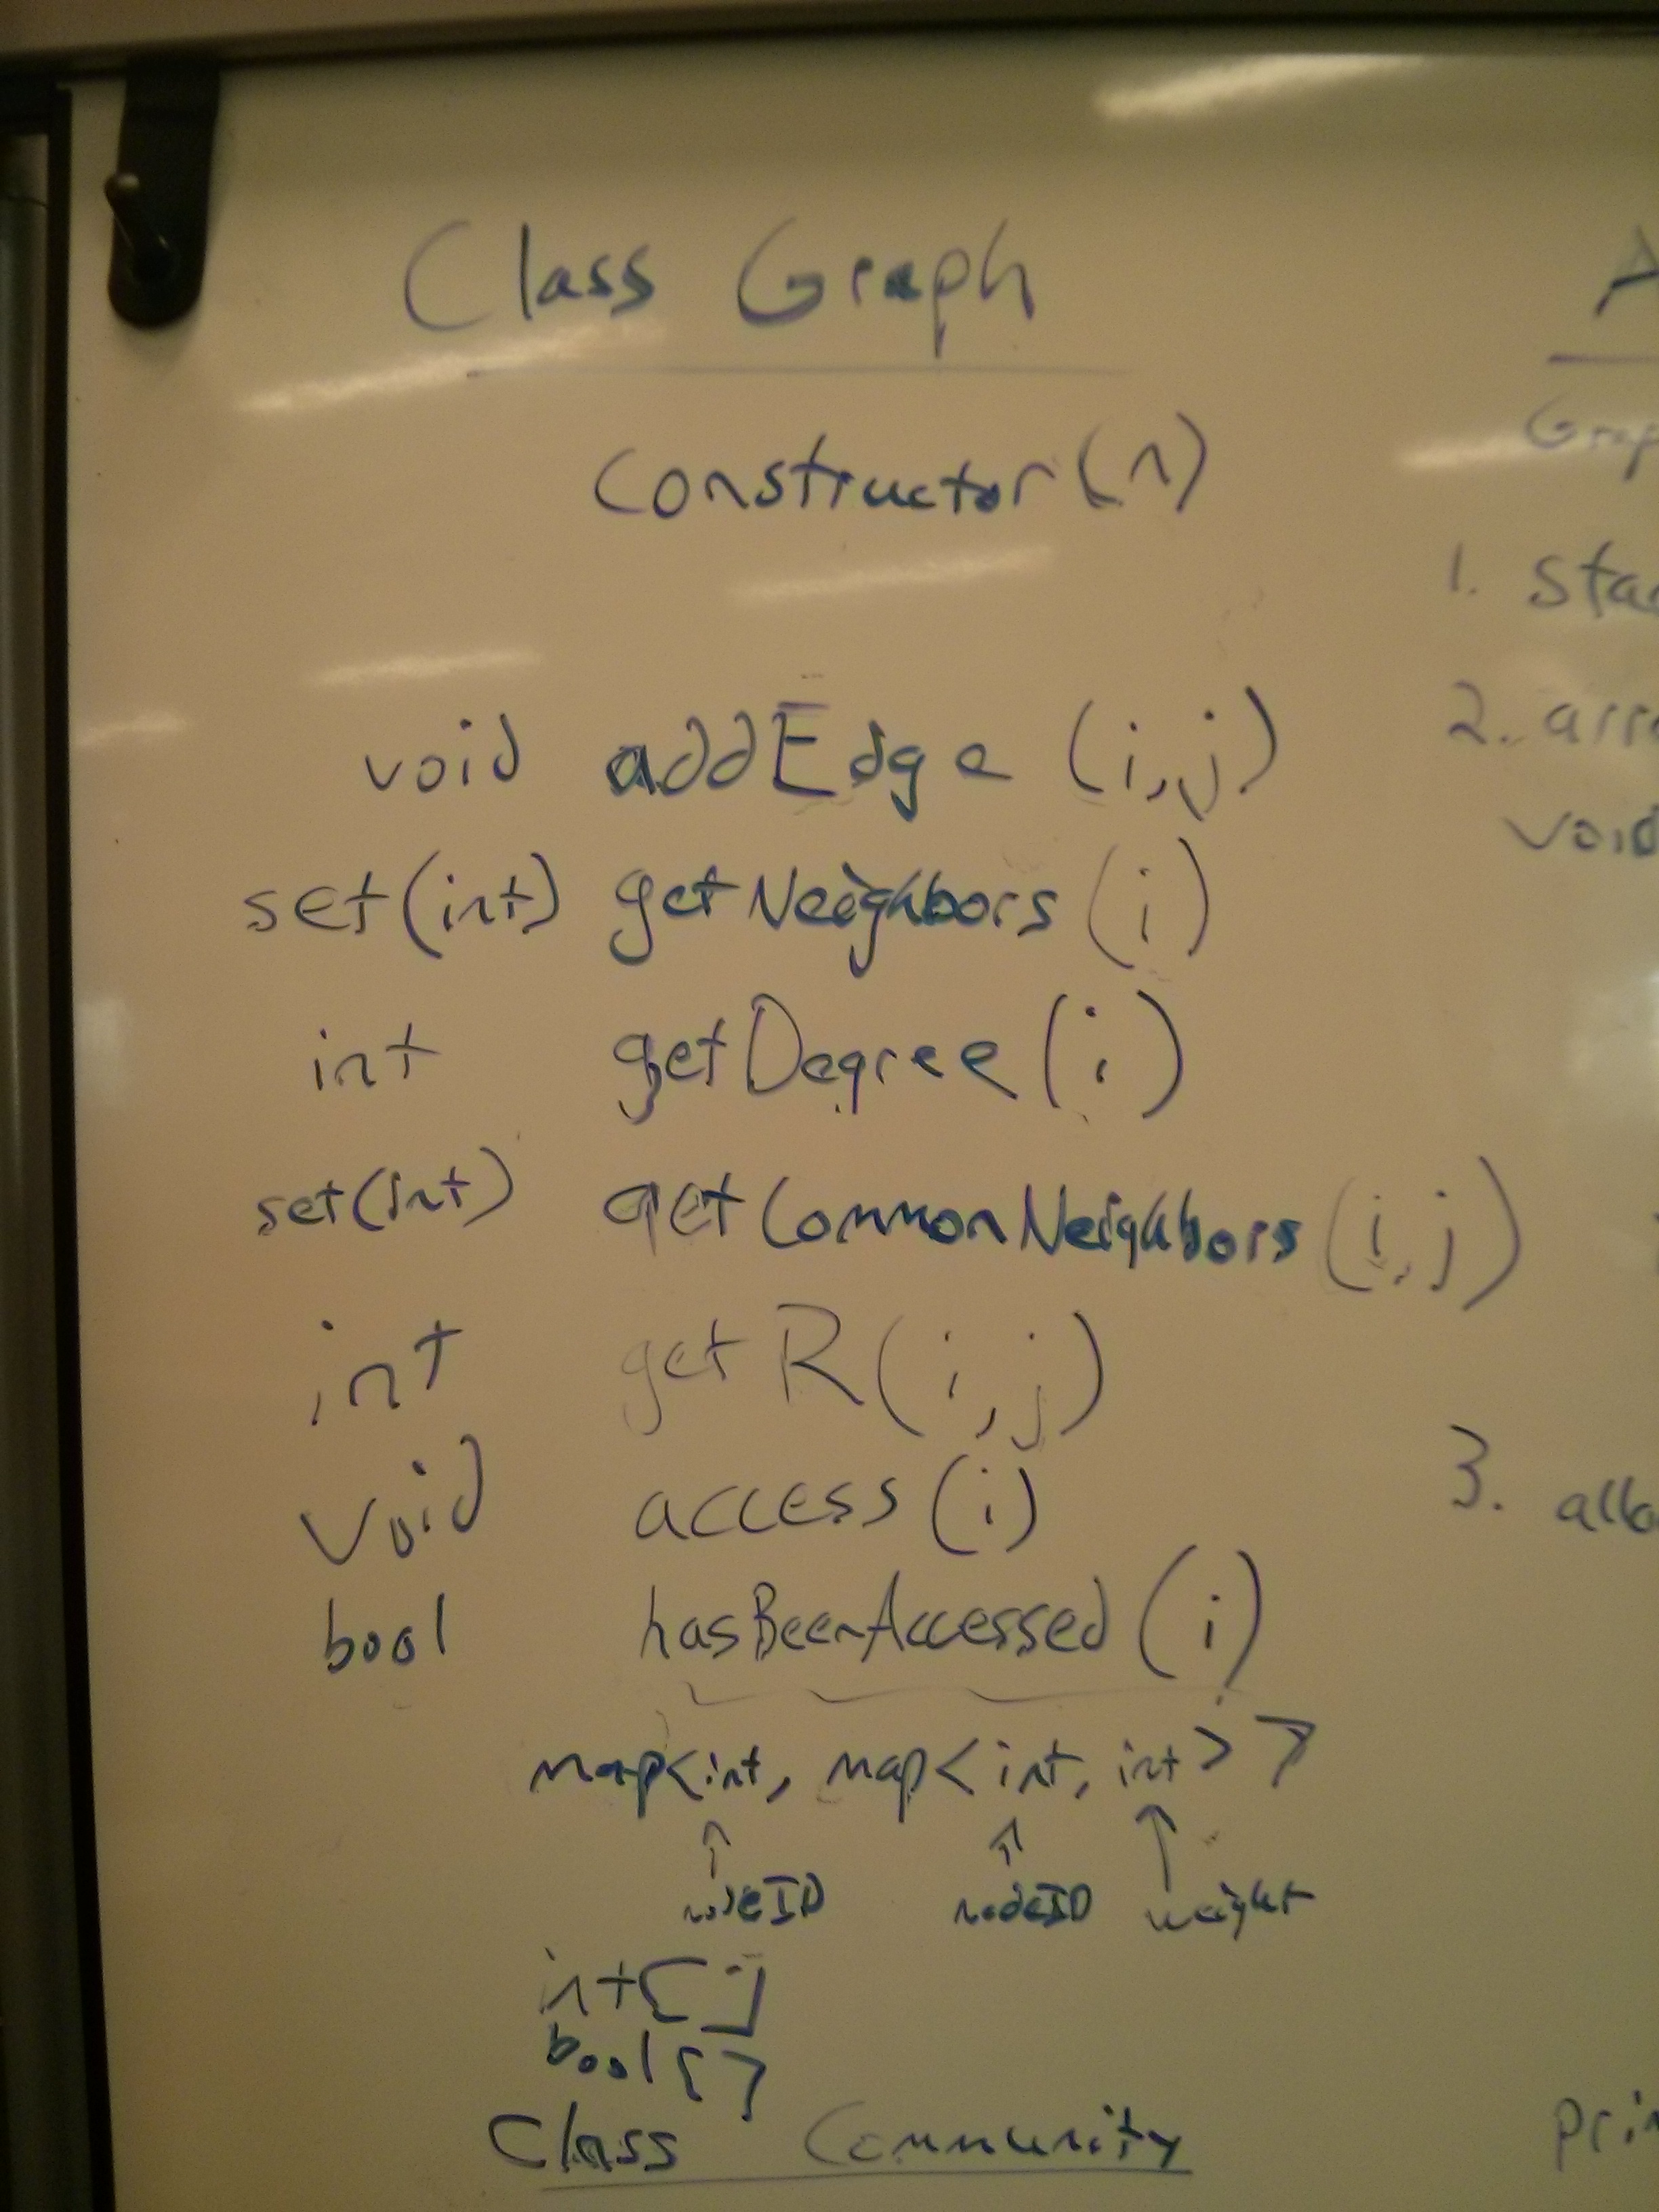 Class Graph
constructor(n)
void addEdge (i,j)
set(int) getNeighbors (i)
int getDegree (i)
set(int) getCommonNeighbors (i,j)
int getR(i,j)
void access (i)
bool hasBeenAccessed (i)
map<int, map<int, int>>
nodeID nodeID weight
int[]
bool[]
Class Community
1.
2.
void
3.